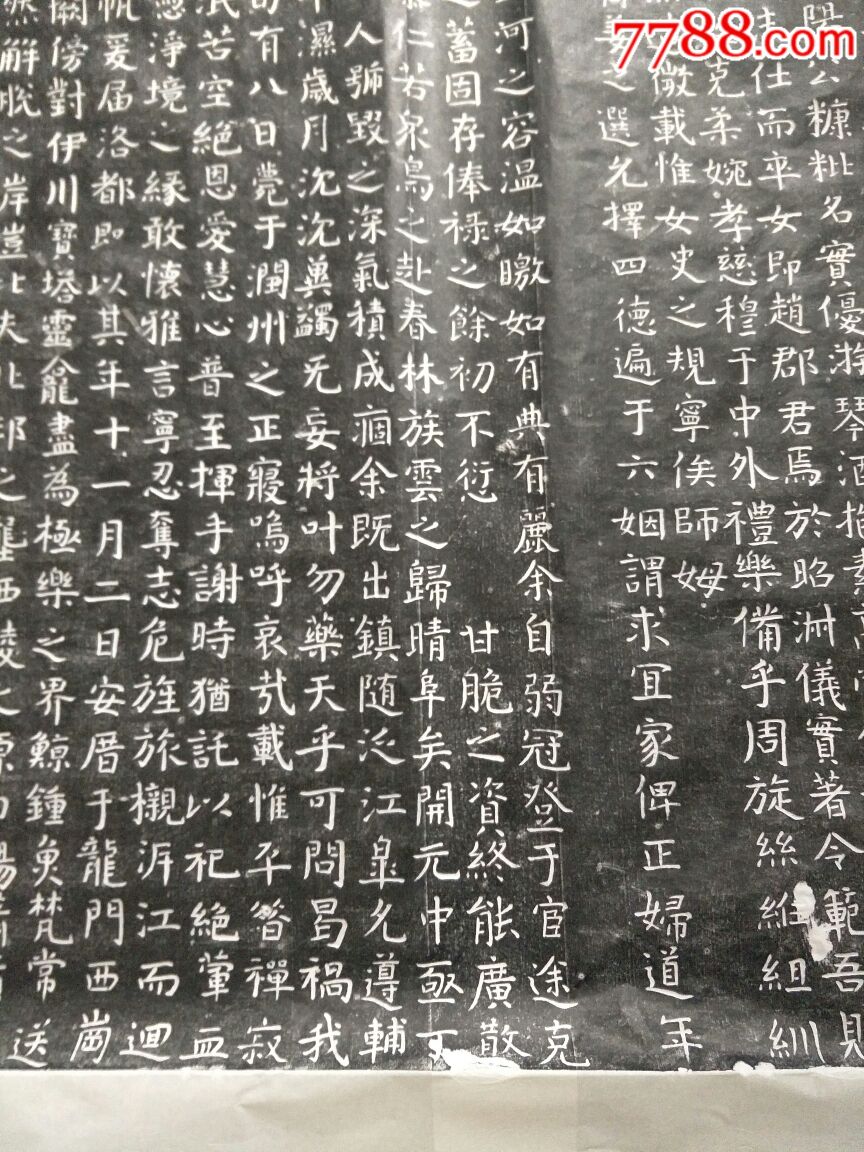 7788.com
陽公糠粃名實優游琴酒抱素
志仕而卒女即趙郡君焉於昭洲儀實著令範吾見
克柔婉孝慈穆于中外禮樂備乎周旋絲維紐紃
微載惟女史之規寧俟師姆
之選允擇四德遍于六姻謂求宜家俾正婦道年
河之容溫如曒如有典有麗余自弱冠登于宦途克
之蓄固存俸禄之餘初不愆甘脆之資終能廣散
仁若泉鳥之赴春林族雲之歸晴阜矣開元中亟丁
人號毀之深氣積成痼余既出鎮随泛江皐允遵輔
濕歲月沈沈奠蠲无妄將叶勿藥天乎可問曷禍我
旬有八日薨于潤州之正寢嗚呼哀哉載惟平昝禪寂
泯苦空絕恩愛慧心普至揮手謝時猶託以祀絕葷血
淨境之緣敢懷雅言寧忍奪志危旌旅櫬泝江而迴
帆爰届洛都即以其年十一月二日安厝于龍門西崗
闕傍對伊川寶塔靈龕盡為極樂之界鯨鍾魚梵常送
解脫之岸豈比夫北邙之壟西陵之